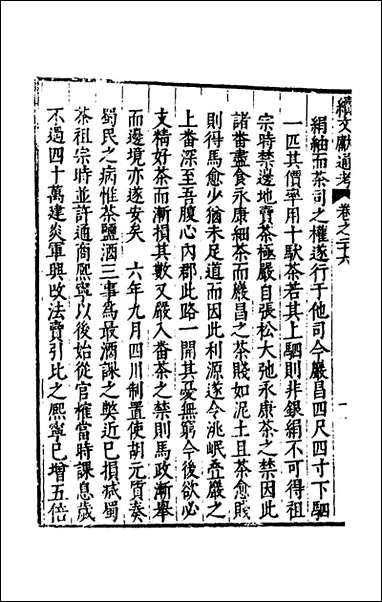 續文獻通考 卷之二十六
絹紬而茶司之權遂行于他司今嚴昌四尺四寸下駟
一匹其價率用十馱茶若其上駟則非銀絹不可得祖
宗時禁邊地賣茶極嚴自張松大弛永康茶之禁因此
諸番盡食永康細茶而嚴昌之茶賤如泥土且茶愈賤
則得馬愈少猶未足道而因此利源遂令洮岷疊嚴之
上番深至吾腹心內郡此路一開其憂無窮今後欲必
支精好茶而漸損其數又嚴入番茶之禁則馬政漸舉
而邊境亦遂安矣 六年九月四川制置使胡元質奏
蜀民之病惟茶鹽酒三事爲最酒課之獘近已損減蜀
茶祖宗時並許通商熙寧以後始從官榷當時課息歲
不過四十萬建炎軍興改法賣引比之熙寧已增五倍